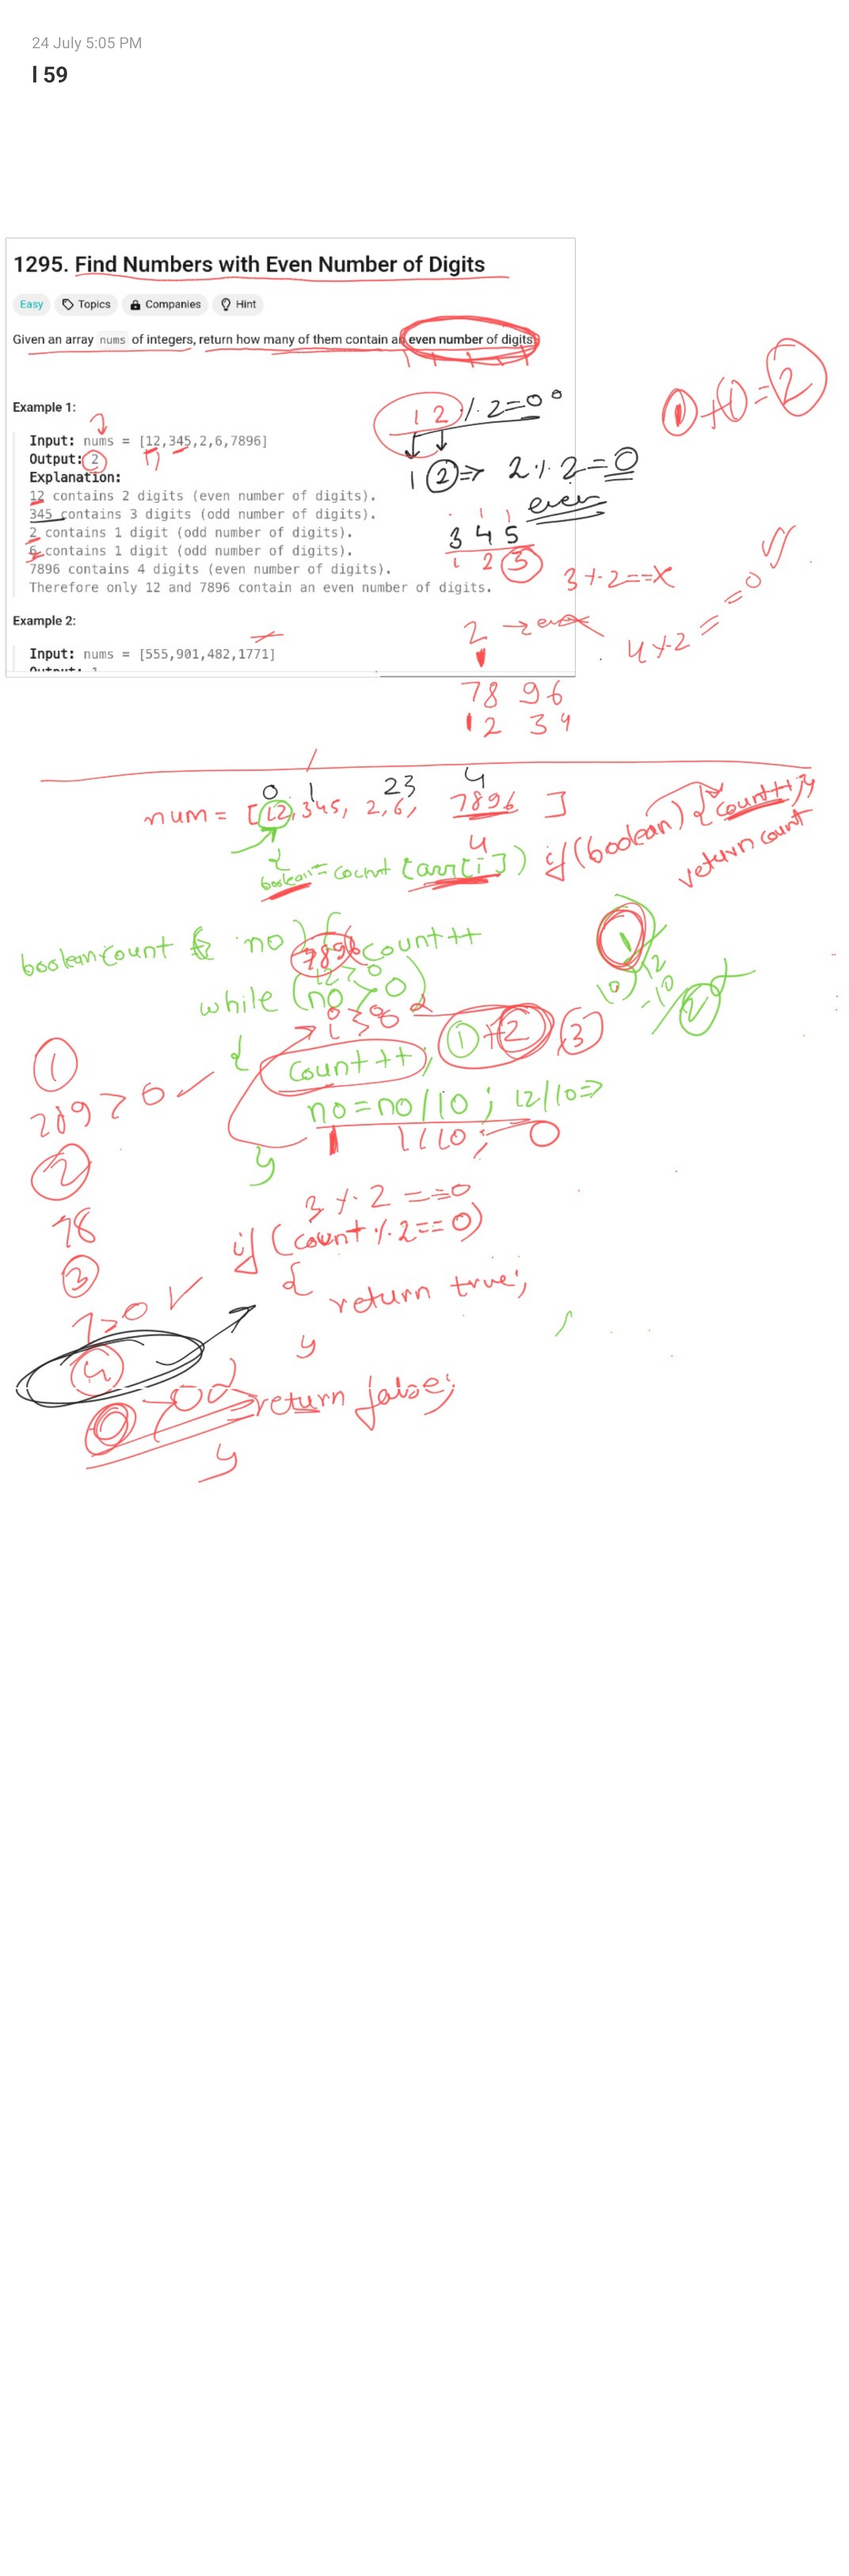 24 July 5:05 PM
l 59
1295. Find Numbers with Even Number of Digits
Easy Topics Companies Hint
Given an array nums of integers, return how many of them contain an even number of digits.
Example 1:
Input: nums = [12,345,2,6,7896]
Output: 2
Explanation:
12 contains 2 digits (even number of digits).
345 contains 3 digits (odd number of digits).
2 contains 1 digit (odd number of digits).
6 contains 1 digit (odd number of digits).
7896 contains 4 digits (even number of digits).
Therefore only 12 and 7896 contain an even number of digits.
Example 2:
Input: nums = [555,901,482,1771]
12 % 2=0
1+1=2
1 2 => 2 % 2=0
even
3 4 5
1 2 3
3 % 2==X
2 → even
4 % 2 = =0
78 96
1 2 3 4
0 1 2 3 4
num = [12, 345, 2, 6, 7896 ]
4
boolean = count (arr[i]) if (boolean) { count++; }
return count
boolean count no) {
7896 count++
12>0
while (no>0)
{ count++; 1 + 2 3
no = no/10 ; 12/10=>
1 1/10; 0
}
1
789>0
2
78
3
7>0
4
0>0
3 % 2 ==0
if (count % 2==0)
{
return true;
}
return false;
}